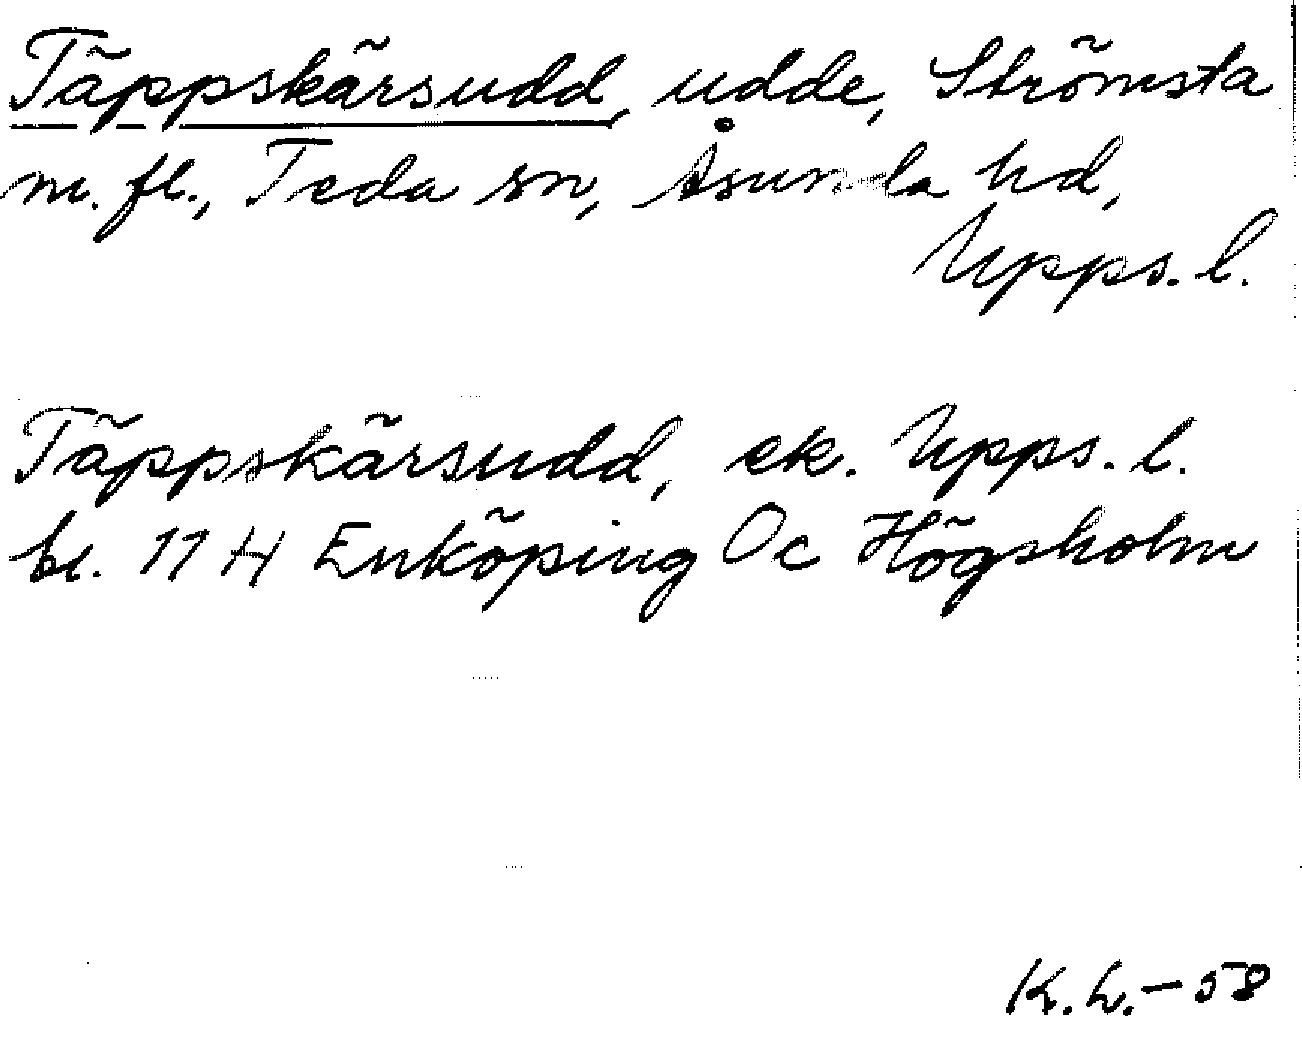 Täppskärsudd, udde, Strömsta
m. fl., Teda sn, Åsunda hd,
Upps. l.
Täppskärsudd, ek. Upps. l.
bl. 11 H Enköping Oc Högsholm
K. L. - 58